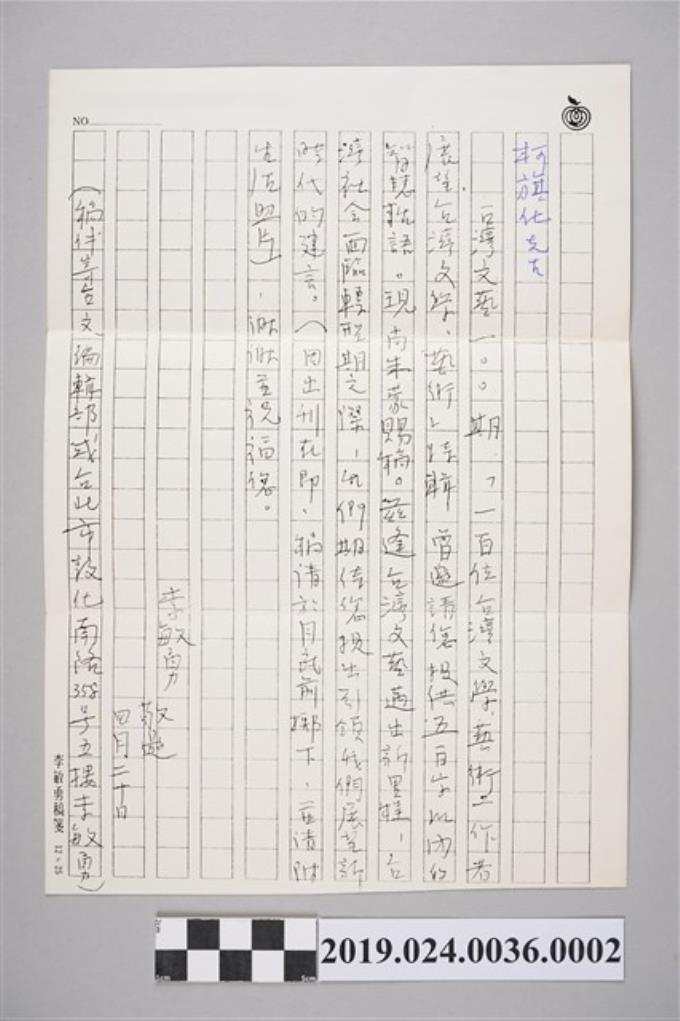 NO
柯旗化先生
台灣文藝一○○期,「一百位台灣文學、藝術工作者
展望台灣文學、藝術」特輯 曾邀請您提供五百字以內的
智慧粒語。現尚未蒙賜稿。茲逢台灣文藝邁出新里程,台
灣社會面臨轉型期之際,我們期待您提出引領我們展望新
時代的建言。(因出刊在即,稿請於月底前擲下,並請附
生活照片,謝謝並祝福您。
李敏勇
敬邀
四月二十日
(稿件寄台文編輯部或台北市敦化南路358号五樓李敏勇)
李敏勇稿箋 12×25
2019.024.0036.0002